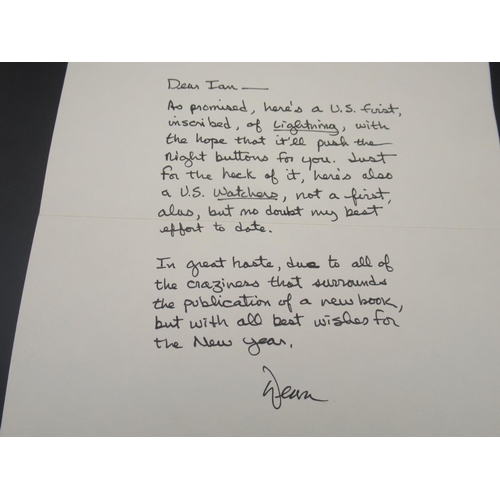 Dear Ian —
As promised, here's a U.S. first,
inscribed, of Lightning, with
the hope that it'll push the
right buttons for you. Just
for the heck of it, here's also
a U.S. Watchers, not a first,
alas, but no doubt my best
effort to date.
In great haste, due to all of
the craziness that surrounds
the publication of a new book,
but with all best wishes for
the New Year.
Dean